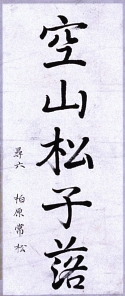 空山松子落
尋六 柏原常松